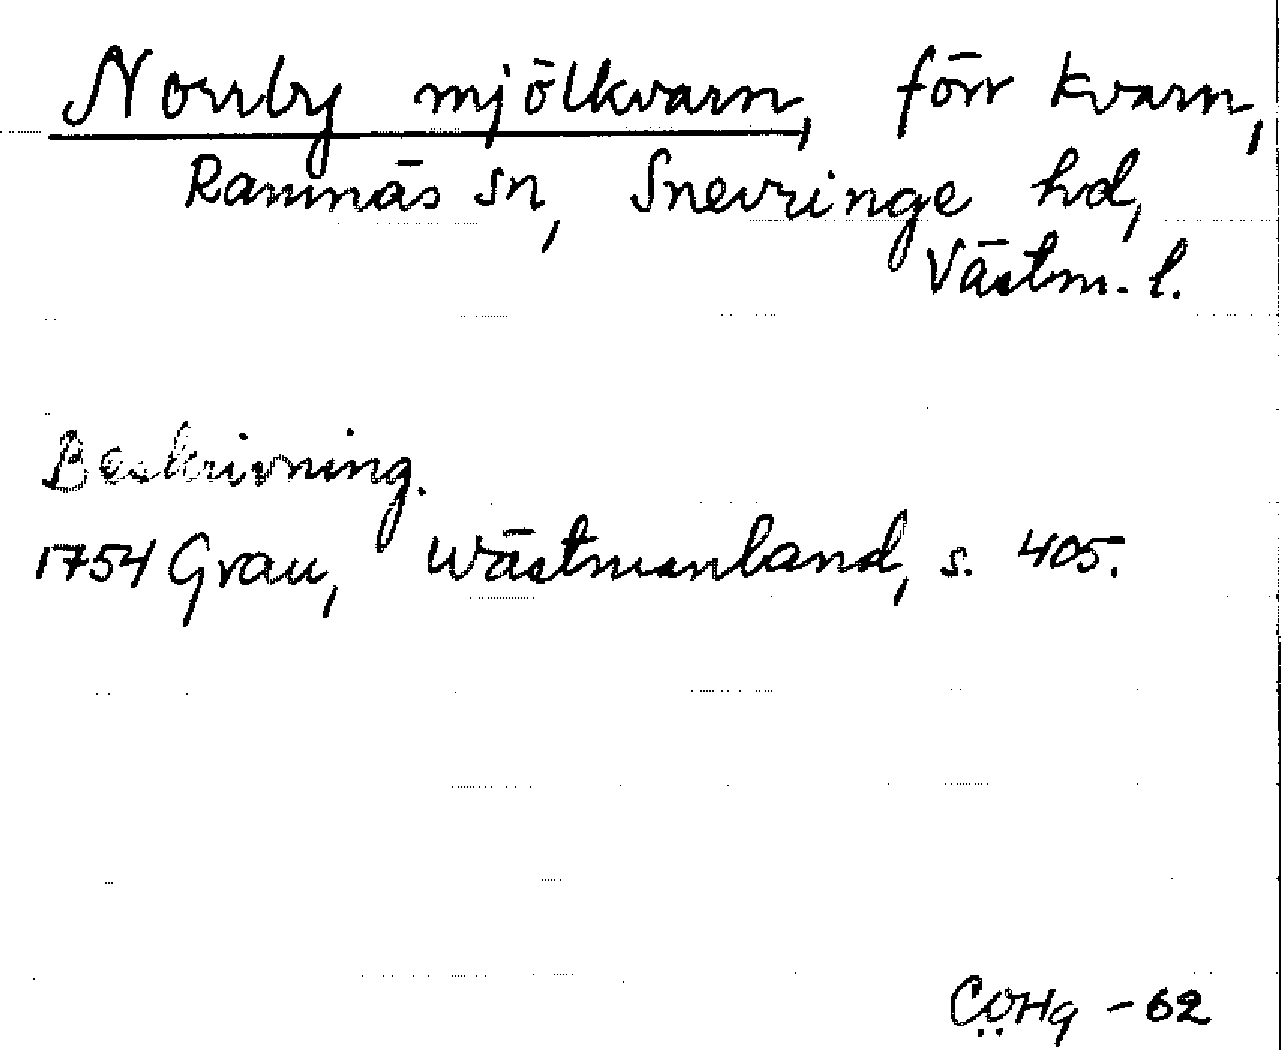 Norrby mjölkvarn, förr kvarn,
Ramnäs sn, Snevringe hd,
Västm. l.
Beskrivning.
1754 Grau, Wästmanland, s. 405.
CÖHg -62